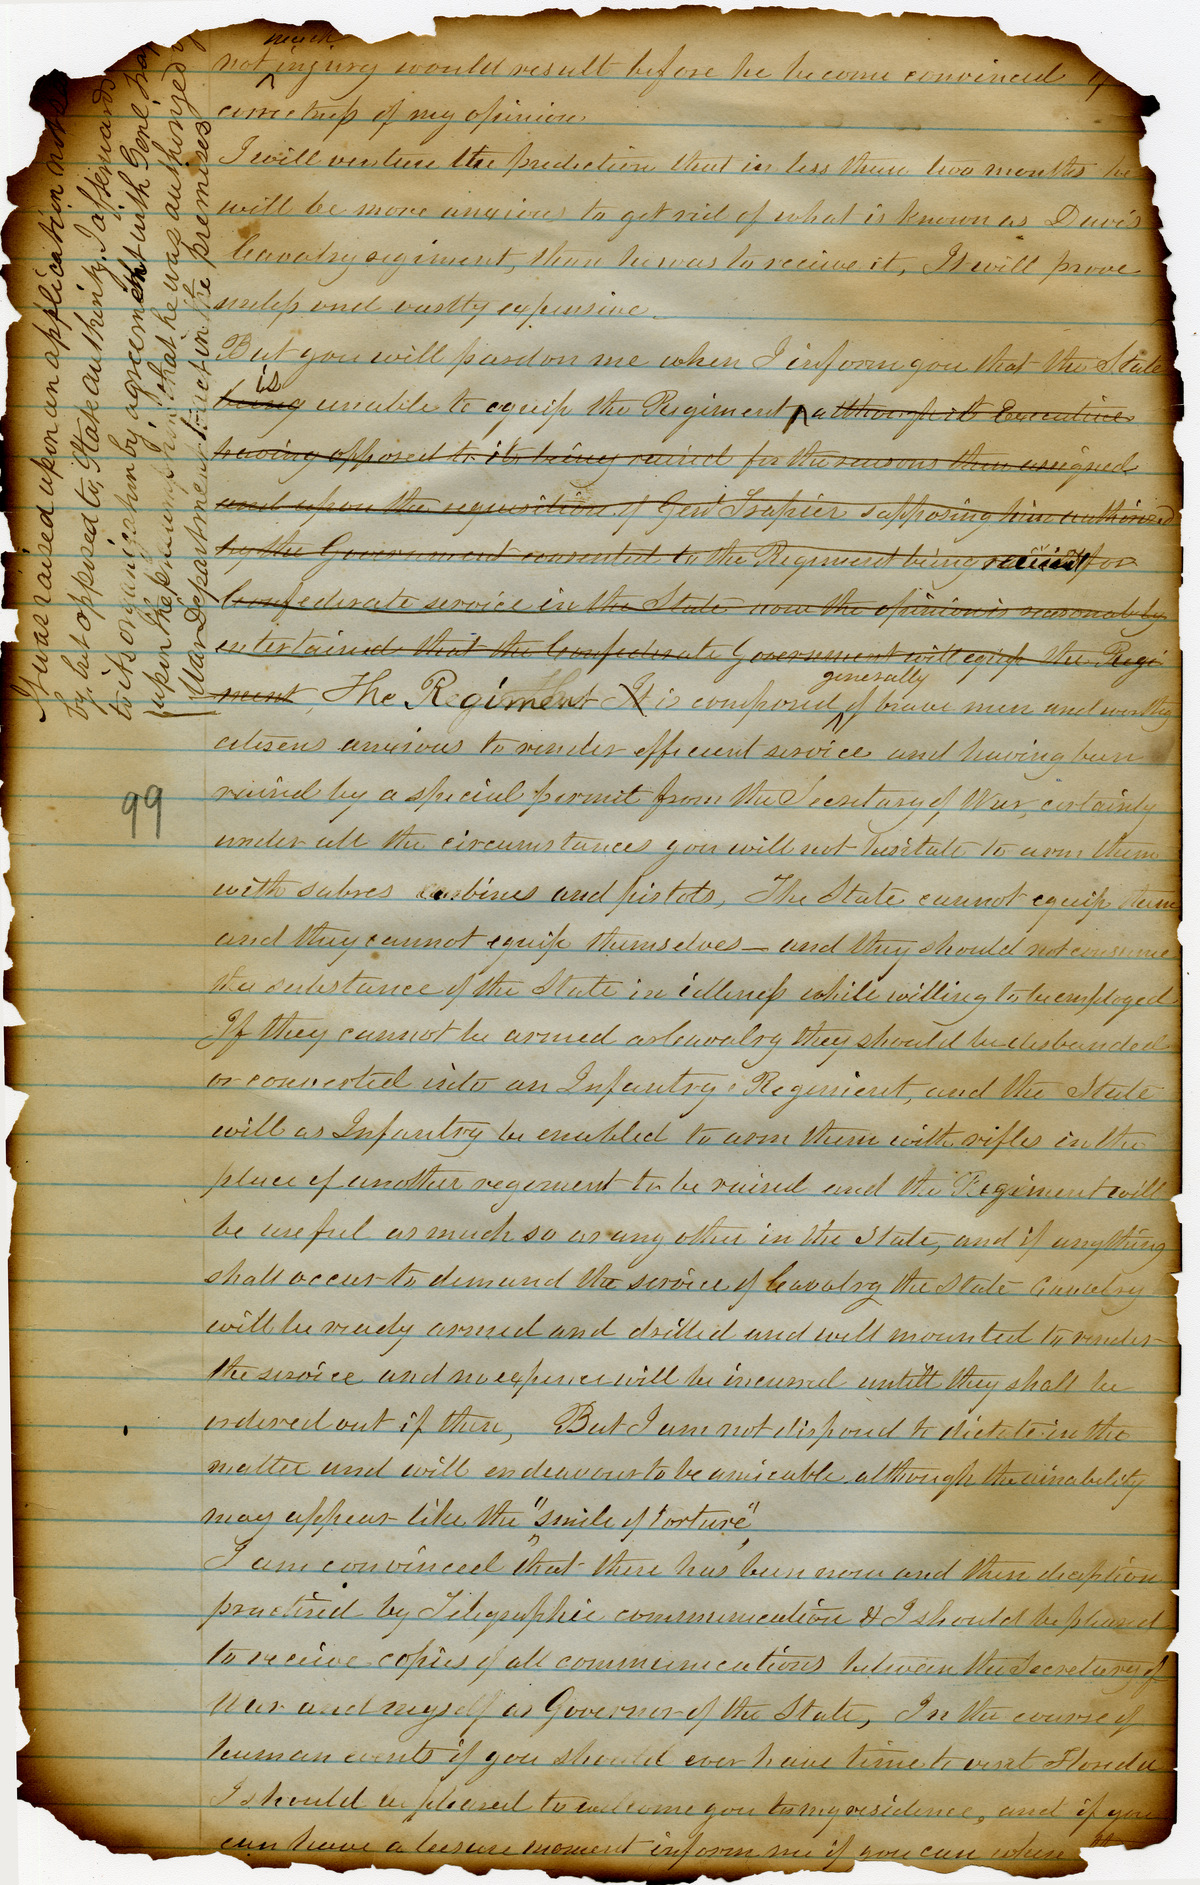 much
not injury would result before he become convinced of
correctness of my opinion
I will venture the prediction that in less than two months he
will be more anxious to get rid of what is known as Davis
Cavalry regiment, than he was to receive it, It will prove
useless and vastly expensive_
But you will pardon me when I inform you that the State
is
being unable to equip the Regiment, although it Executive
having opposed to its being raised for the reasons then assigned
and upon the requisition of Genl Trapier supposing him authorised
by the Government consented to the Regiment being received for
Confederate service in the State now the opinion is reasonably
entertained that the Confederate Government will equip the Regi
generally
ment, The Regiment It is composed of brave men and worthy
citizens anxious to render efficient service and having been
raised by a special permit from the Secretary of War, certainly
under all the circumstances you will not hesitate to arm them
with sabres carbines and pistols, The State cannot equip them
and they cannot equip themselves _ and they should not consume
the substance of the State in idleness while willing to be employed
If they cannot be armed as Cavalry they should be disbanded
or converted into an Infantry Regiment, and the State
will as Infantry be enabled to arm them with rifles in the
place of another regement to be raised and the Regiment will
be useful as much so as any other in the State, and if anything
shall occur to demand the service of Cavalry the State Cavalry
will be ready armed and drilled and well mounted to render
the service and no expence will be incurred untill they shall be
ordered out if then, But I am not disposed to dictate in the
matter and will endeavour to be amicable although the amability
may appear like the "smile of torture"
I am convinced that there has been now and then deception
practised by Telegraphic communication & I should be pleased
to receive copies of all communications between the Secretary of
War and myself as Governor of the State, In the course of
human events if you should ever have time to visit Florida
I should be pleased to welcome you to my residence, and if you
can have a leisure moment inform me if you can when the
It was raised upon an application not
by, but opposed to, State authority. I afterwards
to its organization by agreement with Genl Trap
upon the presumption that he was authorized
War Department to act in the premises
99